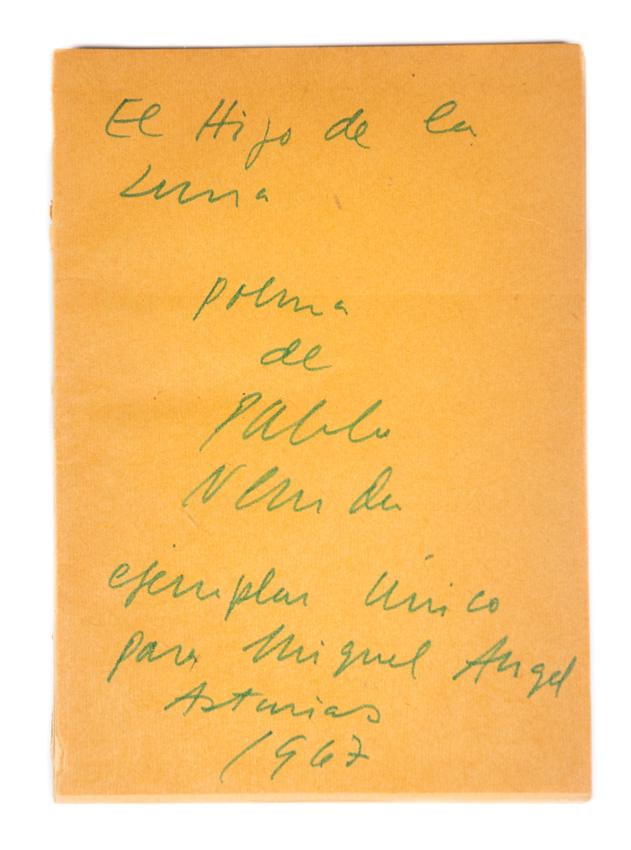 El Hijo de la
Luna
poema
de
Pablo
Neruda
ejemplar único
para Miguel Angel
Asturias
1967